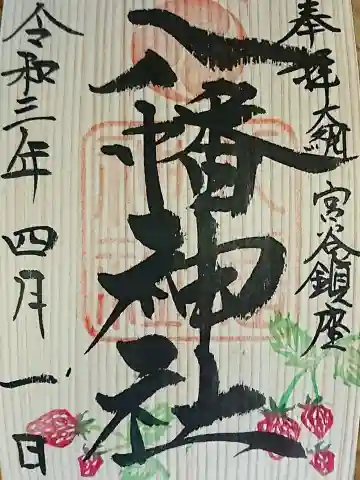 奉拝 大網 宮谷鎮座
八幡神社
令和三年 四月一日